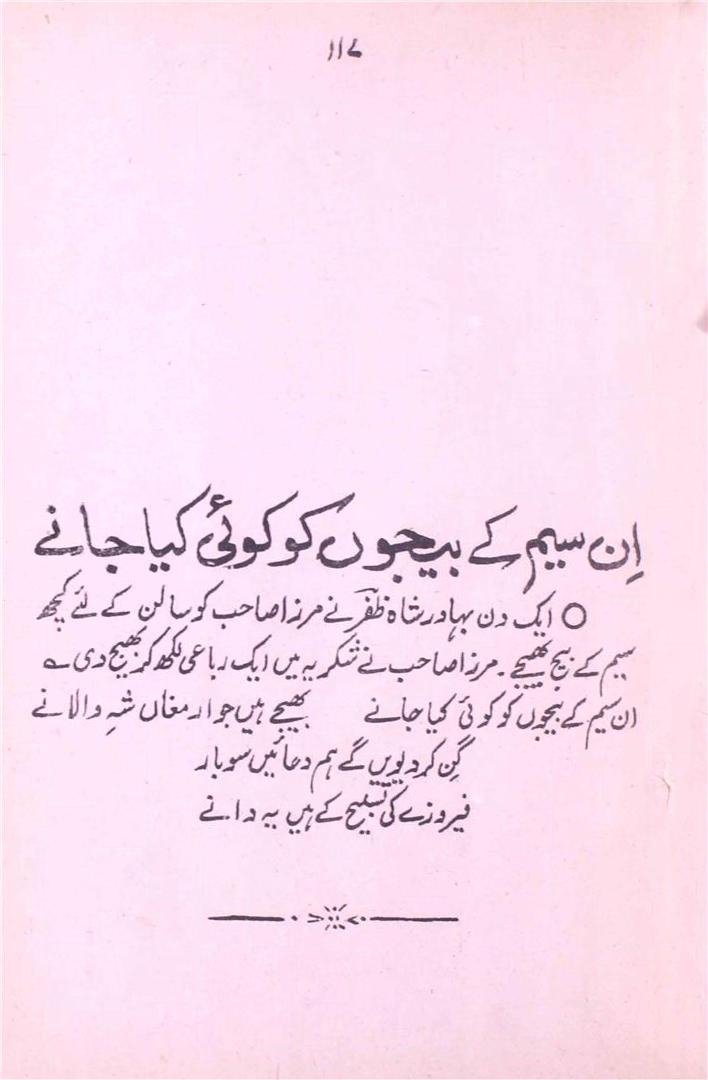 ۱۱۷
اِن سیم کے بیجوں کو کوئی کیا جانے
○ ایک دن بہادر شاہ ظفرؔ نے مرزا صاحب کو سالن کے لئے کچھ
سیم کے بیج بھیجے۔ مرزا صاحب نے شکریہ میں ایک رباعی لکھ کر بھیج دی ؎
ان سیم کے بیجوں کو کوئی کیا جانے بھیجے ہیں جو ارمغاں شہِ والا نے
گِن کر دیویں گے ہم دعائیں سو بار
فیروزے کی تسبیح کے ہیں یہ دانے